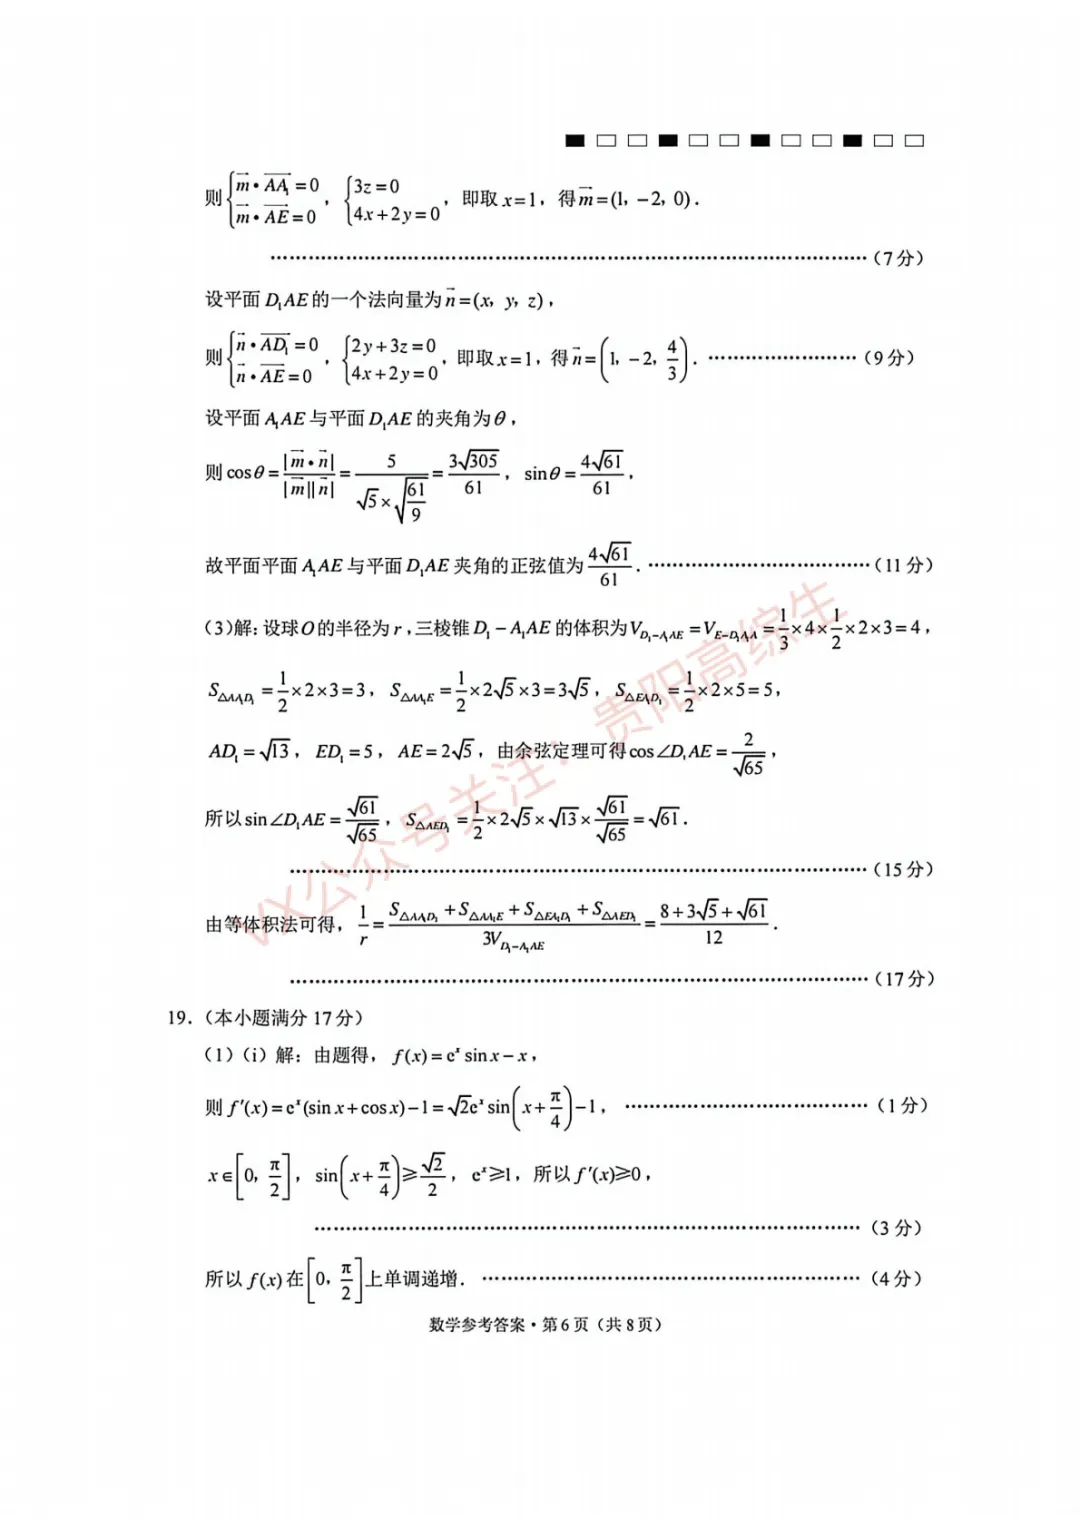 则{m⃗•AA₁⃗=0, m⃗•AE⃗=0，{3z=0, 4x+2y=0，即取x=1，得m⃗=(1，-2，0)．
……………………（7分）
设平面D₁AE的一个法向量为n⃗=(x，y，z)，
则{n⃗•AD₁⃗=0, n⃗•AE⃗=0，{2y+3z=0, 4x+2y=0，即取x=1，得n⃗=(1，-2，4/3)．……………………（9分）
设平面A₁AE与平面D₁AE的夹角为θ，
则cosθ=|m⃗•n⃗|/|m⃗||n⃗|=5/(√5×√(61/9))=3√305/61，sinθ=4√61/61，
故平面平面A₁AE与平面D₁AE夹角的正弦值为4√61/61．……………………（11分）
(3)解：设球O的半径为r，三棱锥D₁-A₁AE的体积为V_{D₁-A₁AE}=V_{E-D₁A₁A}=1/3×4×1/2×2×3=4，
S_{△AA₁D₁}=1/2×2×3=3，S_{△AA₁E}=1/2×2√5×3=3√5，S_{△EA₁D₁}=1/2×2×5=5，
AD₁=√13，ED₁=5，AE=2√5，由余弦定理可得cos∠D₁AE=2/√65，
所以sin∠D₁AE=√61/√65，S_{△AED₁}=1/2×2√5×√13×√61/√65=√61．
……………………（15分）
由等体积法可得，1/r=(S_{△AA₁D₁}+S_{△AA₁E}+S_{△EA₁D₁}+S_{△AED₁})/3V_{D₁-A₁AE}=(8+3√5+√61)/12．
……………………（17分）
19．（本小题满分17分）
（1）（i）解：由题得，f(x)=eˣsinx-x，
则f′(x)=eˣ(sinx+cosx)-1=√2eˣsin(x+π/4)-1，……………………（1分）
x∈[0，π/2]，sin(x+π/4)≥√2/2，eˣ≥1，所以f′(x)≥0，
……………………（3分）
所以f(x)在[0，π/2]上单调递增．……………………（4分）
数学参考答案·第6页（共8页）
VX公众号关注：贵阳高综生